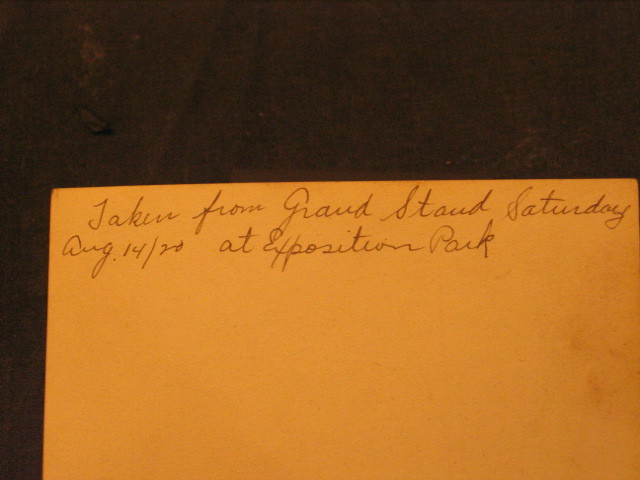 Taken from Grand Stand Saturday
Aug. 14/20 at Exposition Park